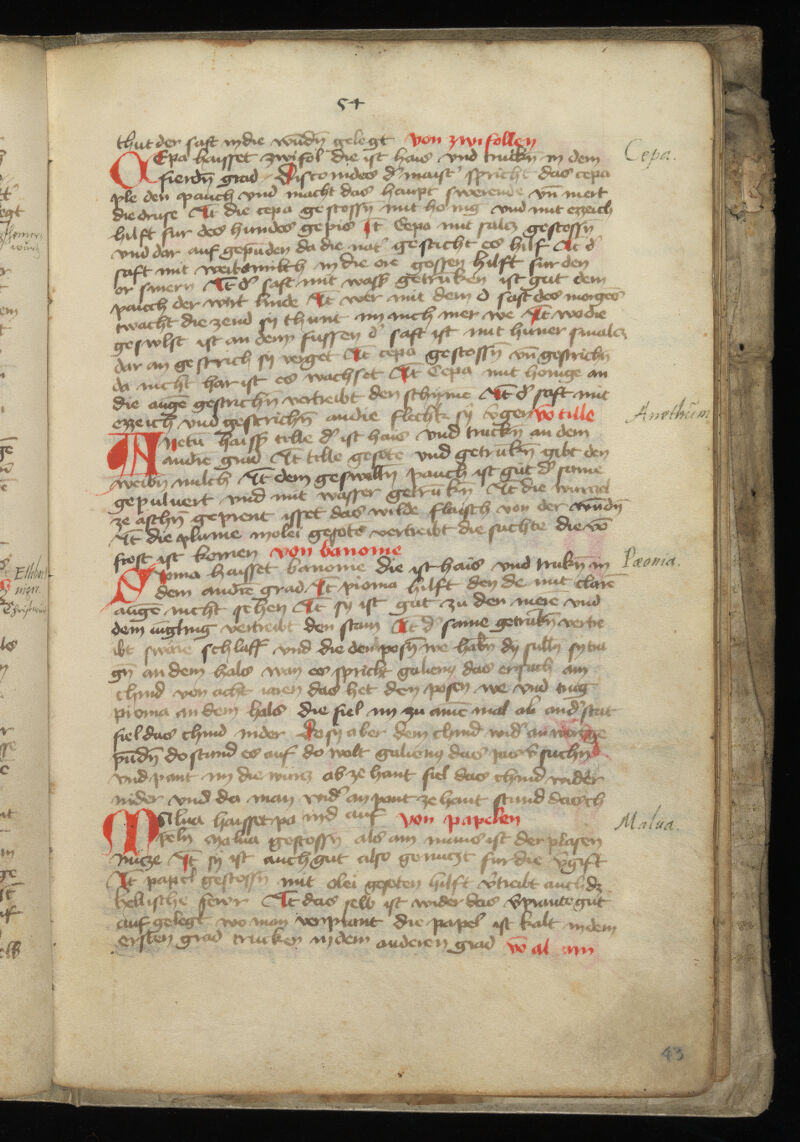 54
thut der saft in die wūdn gelegt von zwifollen
Cepa.
Cepa haisset zwifol die ist hais vnd trucken in dem
fierdn grad Disco rides d' maist' spricht das cepa
ple den pauch vnd macht das haupt swerende vn mert
die druse It die cepa gestossn mit honig vnd mit ezzeich
hilft fur des hundes gepis It Cepa mit salcz gestossn
vnd dar auf gepūden da die nat' gesticht es hilf It d'
saft mit weibsmilch in die ore gossen hilft fur den
or smern It d' saft mit wass' getruken ist gut dem
pauch der wirt linde It wer mit dem d saft des morges
twacht die zend sy thunt im nich mer we It wo die
geswlst ist an dem fussen d' saft ist mit huner smalcz
dar an gestrich sy verget It cepa gestossn vn gestrichn
da nicht har ist es wachset It Cepa mit honige an
die auge gestrichn vertreibt den schyme It d' saft mit
ezzeich vnd gestrichn an die flecht sy v'gen vo tille
Anethum
Anetu haiss tille d' ist hais vnd truckn an dem
andre grad It tille gesote vnd getrukn gibt den
weibn milch It dem geswolln pauch ist gut d' same
gepulvert vnd mit wasser getrukn It die wurcz
ze aschn geprent isset das wilde flaisch von der wūdn
It die plume in olei gesots vertreibt die suchte die vo
frost ist komen von banonie
Pæonia.
Pionia haisset banonie die ist hais vnd trukn in
dem andre grad It pionia hilft den de mit clare
auge nicht sehen It sy ist gut zu den niere vnd
dem iungling vertreibt den stain It d' same getrukn vertre
ibt swäre schlaff vnd die den posn we habn dy sulln sy tra
gn an dem hals wan es spricht galieng das er sach ain
chind von acht iaren das het den posen we vnd trug
pionia an dem hals die fiel im zu aine mal ab an d' stat
fiel das chind nider So sy aber dem chind wid' an wurge
pūdn do stund es auf do wolt galieng das pas v'suchn
vnd pant im die wurcz ab ze hant fiel das chind wider
nider vnd da man wid' an pant ze hant stund das ch
ind auf von papelen
Malva.
Malua haisset pa
peln Malua gestossn als ain mus ist der plasen
nucze It sy ist auch gut also genuczt fur die v'gift
It papel gestossn mit olei gesoten hilft v'treibt auch dz
hellische fewr It das selb ist wider das v'prante gut
auf gelegt wo man verprant die papel ist kalt in dem
ersten grad trucken in dem anderen grad vo al am
43